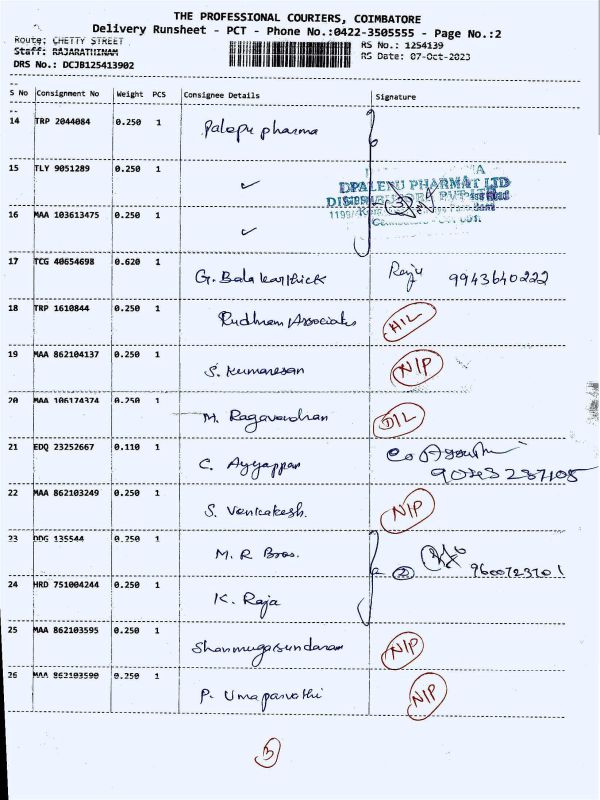 THE PROFESSIONAL COURIERS, COIMBATORE
Delivery Runsheet - PCT - Phone No.:0422-3505555 - Page No.:2
Route: CHETTY STREET
RS No.: 1254139
Staff: RAJARATHINAM
RS Date: 07-Oct-2023
DRS No.: DCJB125413902
S No Consignment No Weight PCS Consignee Details Signature
14 TRP 2044084 0.250 1 Palepu pharma
15 TLY 9051289 0.250 1 ✓
DPALEPU PHARMAT LTD
16 MAA 103613475 0.250 1 ✓
17 TCG 40654698 0.620 1 G. Bala karthick Raju 9943640222
18 TRP 1610844 0.250 1 Rudhram Associates HIL
19 MAA 862104137 0.250 1 S. Kumaresan N/P
20 MAA 106174374 0.250 1 M. Ragavendran DIL
21 EDQ 23252667 0.110 1 C. Ayyappan
22 MAA 862103249 0.250 1 S. Venkatesh. N/P
23 DDG 135544 0.250 1 M. R Bros. 2 9600723701
24 HRD 751004244 0.250 1 K. Raja
25 MAA 862103595 0.250 1 Shanmugasundaram N/P
26 MAA 862103590 0.250 1 P. Umaparvathi N/P
3